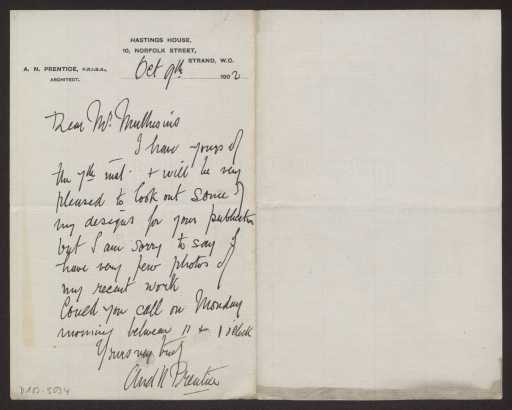 HASTINGS HOUSE,
10, NORFOLK STREET,
STRAND, W.C.
A. N. PRENTICE, F.R.I.B.A.,
ARCHITECT.
Oct 9th 1902
Dear Mr. Muthesius
I have yours of
the 7th inst. & will be very
pleased to look out some of
my designs for your publication
but I am sorry to say I
have very few photos of
my recent work
Could you call on Monday
morning between 11 & 1 o'clock
Yours very truly
And N Prentice